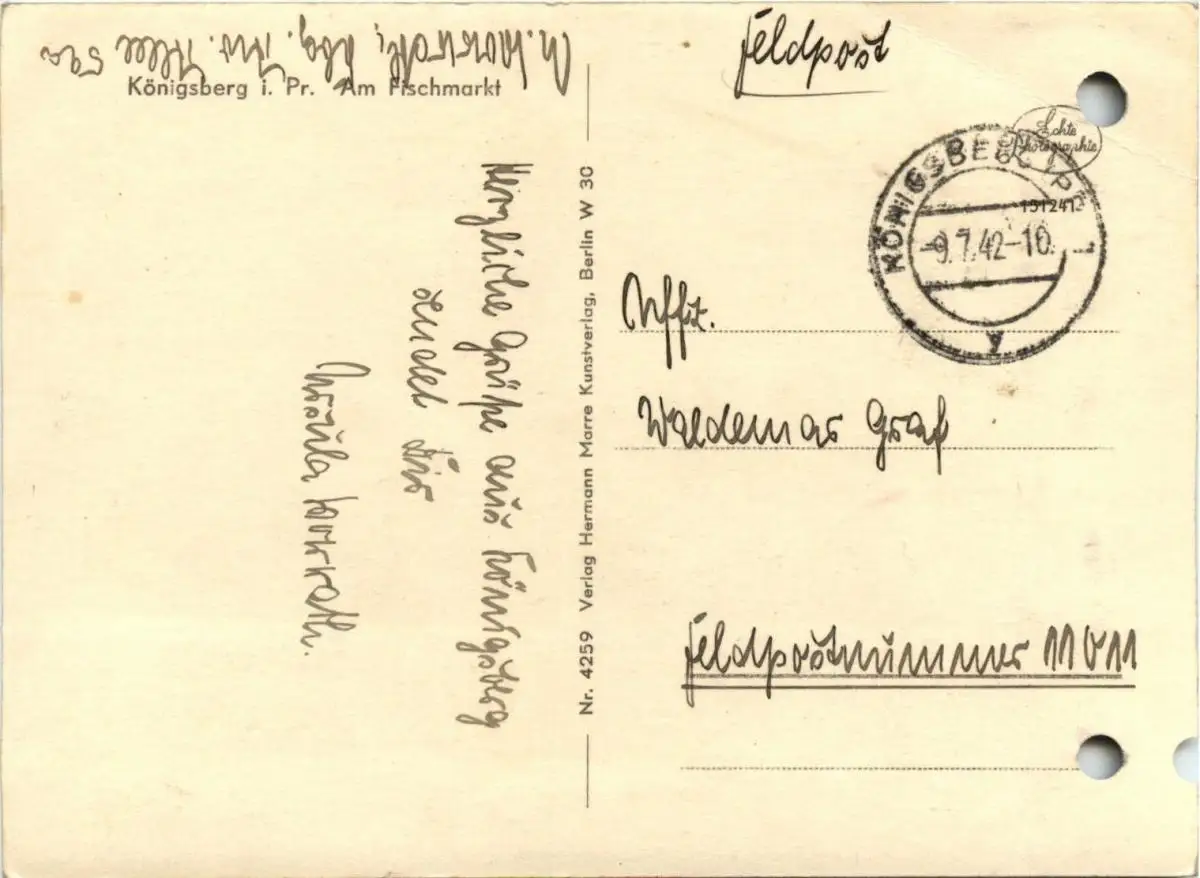 Königsberg i. Pr. Am Fischmarkt
Herzliche Grüße aus Königsberg
sendet Dir
Ursula
Nr. 4259 Verlag Hermann Marre Kunstverlag, Berlin W 30
Feldpost
Echte
Photographie
KÖNIGSBERG (PR)
151241
-9.7.42-10.
y
Uffz.
Waldemar Graf
Feldpostnummer 11011